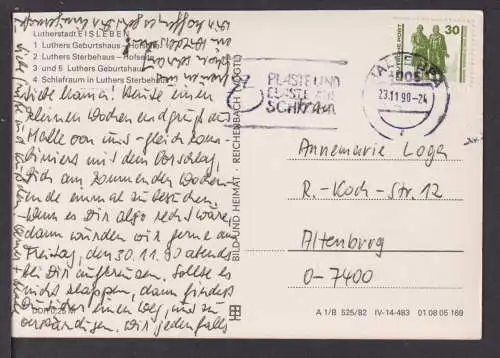 Lutherstadt EISLEBEN
1 Luthers Geburtshaus - Hofseite
2 Luthers Sterbehaus - Hofseite
3 und 5 Luthers Geburtshaus
4 Schlafraum in Luthers Sterbehaus
Liebe Hanni! Heute einen
kleinen Wochenendgruß aus
Halle von uns - gleich kom-
biniert mit dem Vorschlag,
Dich am kommenden Wochen-
ende einmal zu besuchen.
Wenn es Dir also recht wäre,
dann würden wir gerne am
Freitag, den 30.11.90 abends
bei Dir aufkreuzen. Sollte es
nicht klappen, dann findest
Du sicher einen Weg, uns zu
verständigen. Wir jedenfalls
DDR 0,25 M
BILD UND HEIMAT · REICHENBACH (VOGTL)
PLASTE UND
ELASTE AUS
SCHKOPAU
23.11.90-24
DEUTSCHE POST
30
Annemarie Loga
R.-Koch-Str. 12
Altenburg
O-7400
A 1/B 525/82 IV-14-483 01 08 05 169